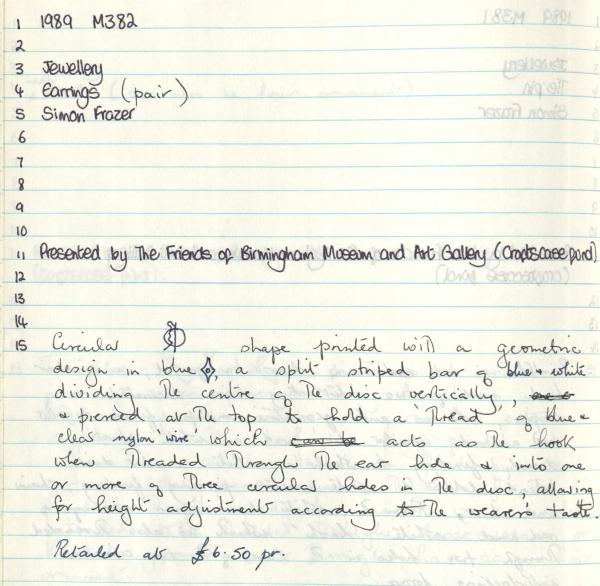 1 1989 M382
2
3 Jewellery
4 earrings (pair)
5 Simon Frazer
6
7
8
9
10
11 Presented by The Friends of Birmingham Museum and Art Gallery (Craftscase fund)
12
13
14
15 Circular shape printed with a geometric
design in blue, a split striped bar of blue & white
dividing the centre of the disc vertically,
& pierced at the top to hold a 'thread' of blue &
clear nylon 'wire' which acts as the hook
when threaded through the ear hole & into one
or more of three circular holes in the disc, allowing
for height adjustment according to the wearer's taste.
Retailed at £6.50 pr.